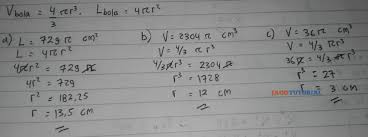 V bola = 4/3 πr³, L bola = 4πr²
a) L = 729 π cm²
L = 4πr²
4πr² = 729 π
4r² = 729
r² = 182,25
r = 13,5 cm
b) V = 2304 π cm³
V = 4/3 π r³
4/3 πr³ = 2304 π
r³ = 1728
r = 12 cm
c) V = 36π cm³
V = 4/3 π r³
36π = 4/3 π r³
r³ = 27
r = 3 cm
JAGOTUTORIAL